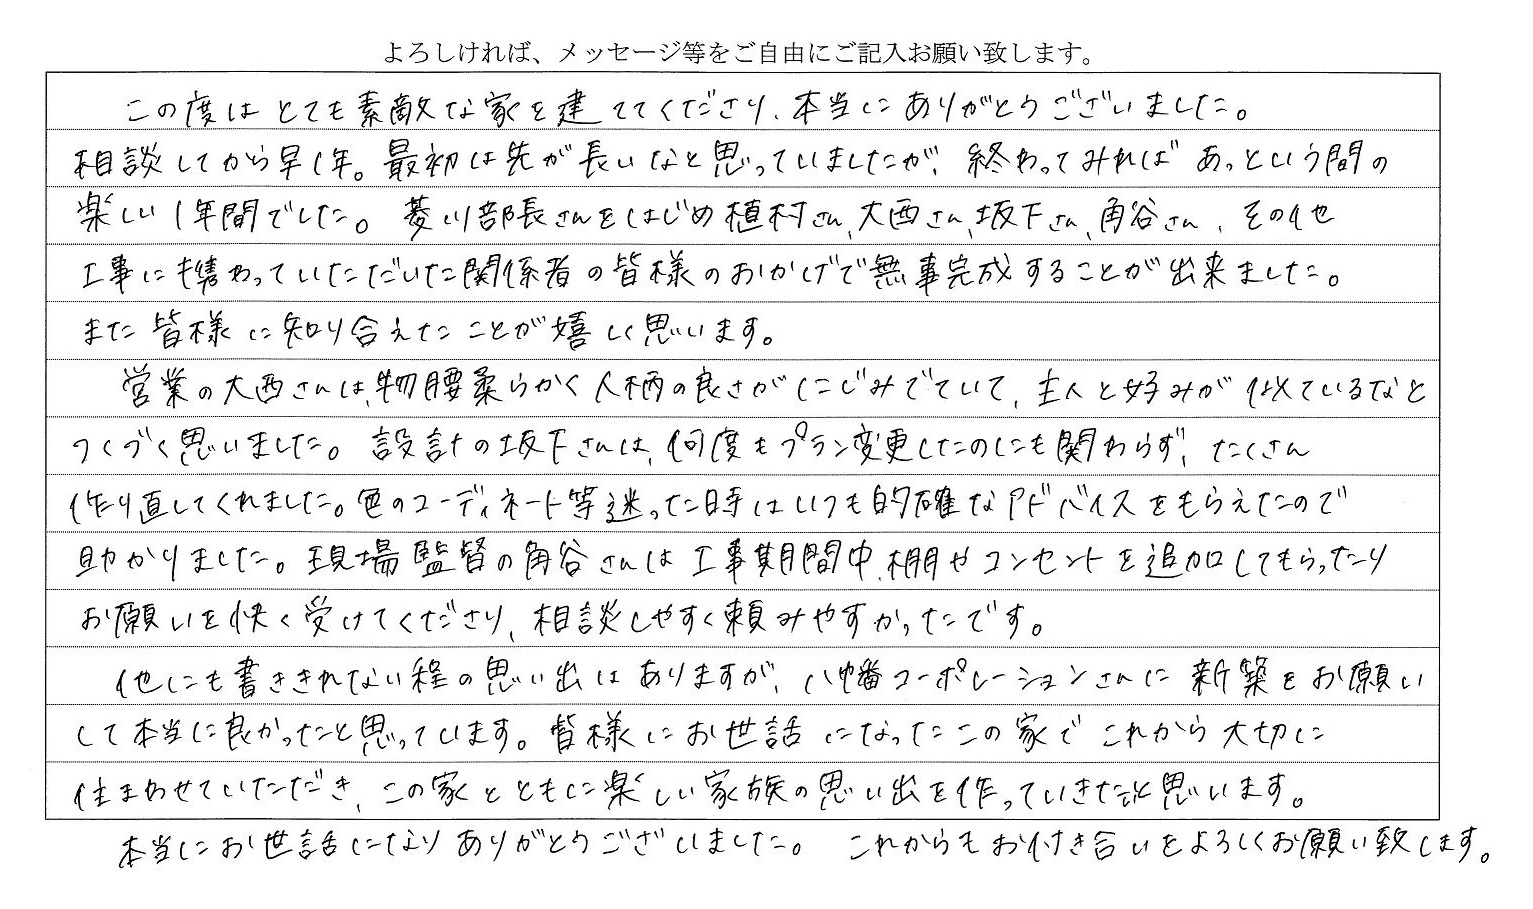 よろしければ、メッセージ等をご自由にご記入お願い致します。
この度はとても素敵な家を建ててくださり、本当にありがとうございました。
相談してから早1年。最初は先が長いなと思っていましたが、終わってみればあっという間の
楽しい1年間でした。菱川部長さんをはじめ植村さん、大西さん、坂下さん、角谷さん、その他
工事に携わっていただいた関係者の皆様のおかげで無事完成することが出来ました。
また皆様に知り合えたことが嬉しく思います。
営業の大西さんは、物腰柔らかく人柄の良さがにじみでていて、主人と好みが似ているなと
つくづく思いました。設計の坂下さんは、何度もプラン変更したのにも関わらず、たくさん
作り直してくれました。色のコーディネート等迷った時はいつも的確なアドバイスをもらえたので
助かりました。現場監督の角谷さんは工事期間中、棚やコンセントを追加してもらったり
お願いを快く受けてくださり、相談しやすく頼みやすかったです。
他にも書ききれない程の思い出はありますが、八幡コーポレーションさんに新築をお願い
して本当に良かったと思っています。皆様にお世話になったこの家でこれから大切に
住まわせていただき、この家とともに楽しい家族の思い出を作っていきたいと思います。
本当にお世話になりありがとうございました。これからもお付き合いをよろしくお願い致します。